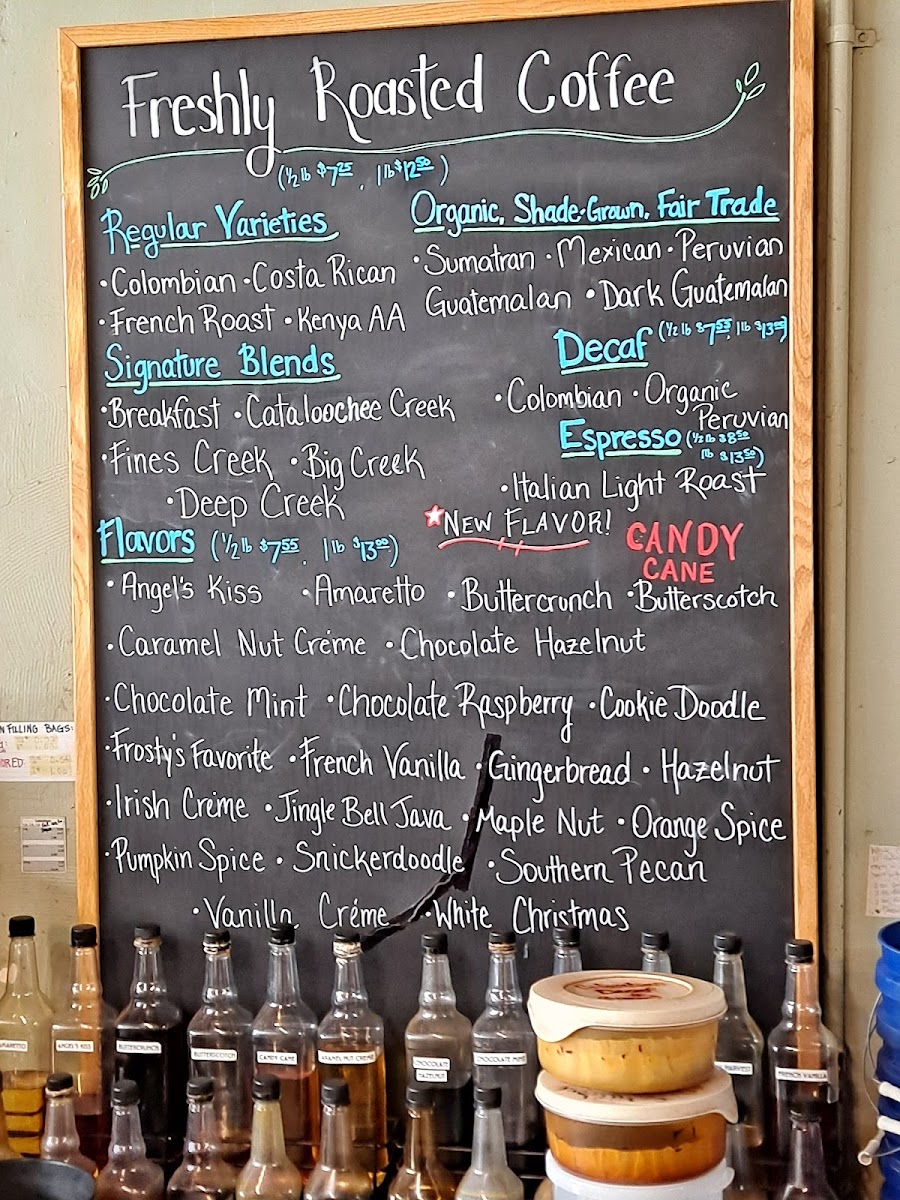 Freshly Roasted Coffee
(½ lb $7.25, 1 lb $12.50)
Regular Varieties
·Colombian ·Costa Rican
·French Roast ·Kenya AA
Organic, Shade-Grown, Fair Trade
·Sumatran ·Mexican ·Peruvian
Guatemalan ·Dark Guatemalan
Signature Blends
·Breakfast ·Cataloochee Creek
·Fines Creek ·Big Creek
·Deep Creek
Decaf (½ lb $7.55, 1 lb $13.00)
·Colombian ·Organic
Peruvian
Espresso (½ lb $8.50
1 lb $13.50)
·Italian Light Roast
Flavors (½ lb $7.55, 1 lb $13.00)
NEW FLAVOR! CANDY
CANE
·Angel's Kiss ·Amaretto ·Buttercrunch ·Butterscotch
·Caramel Nut Créme ·Chocolate Hazelnut
·Chocolate Mint ·Chocolate Raspberry ·Cookie Doodle
·Frosty's Favorite ·French Vanilla ·Gingerbread ·Hazelnut
·Irish Créme ·Jingle Bell Java ·Maple Nut ·Orange Spice
·Pumpkin Spice ·Snickerdoodle ·Southern Pecan
·Vanilla Créme ·White Christmas
FILLING BAGS:
AMARETTO
ANGEL'S KISS
BUTTERCRUNCH
BUTTERSCOTCH
CANDY CANE
CARAMEL NUT CREME
CHOCOLATE
HAZELNUT
CHOCOLATE MINT
HARVEST
FRENCH VANILLA